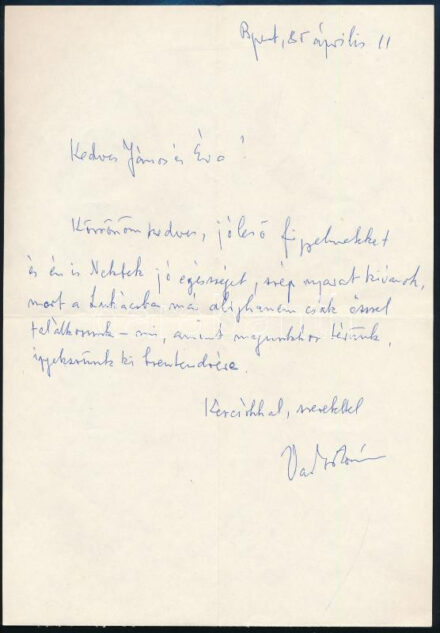 Bpest, 85 április 11
Kedves János és Éva!
Köszönöm kedves, jóleső figyelmeteket
és én is Nektek jó egészséget, szép nyarat kívánok,
mert a Lukácsba már aligha­nem csak ősszel
találkozunk – mi, amint magunkhoz térünk,
igyekszünk ki Szentendrére.
Kézcsókkal, szeretettel